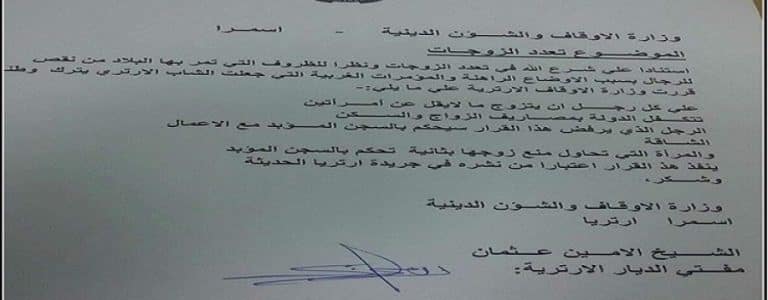 وزارة الاوقاف والشؤن الدينية - اسمرا
الموضوع تعدد الزوجات
استنادا علي شرع الله في تعدد الزوجات ونظرا للظروف التي تمر بها البلاد من نقص
للرجال بسبب الاوضاع الراهنة والمؤمرات الغربية التي جعلت الشاب الارتري يترك وطنه
قررت وزارة الاوقاف الارترية علي ما يلي:-
علي كل رجل ان يتزوج ما لايقل عن امراتين
تتكفل الدولة بمصاريف الزواج والسكن
الرجل الذي يرفض هذا القرار سيحكم بالسجن المؤبد مع الاعمال
الشاقة
والمراة التي تحاول منع زوجها بثانية تحكم بالسجن المؤبد
ينفذ هذ القرار اعتبارا من نشره في جريدة ارتريا الحديثة
وشكر.
وزارة الاوقاف والشؤن الدينية
اسمرا ارتريا
الشيخ الامين عثمان
مفتي الديار الارترية: